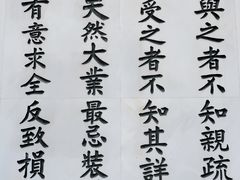 與之者不知親疏
受之者不知其詳
天然大業最忌裝
有意求全反致損